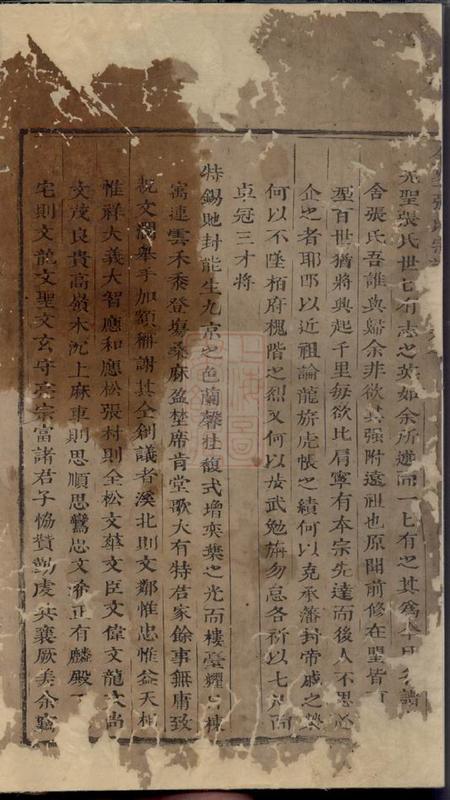 先聖張氏世已有志之英如余所遊而一七有之其為本
舍張氏吾誰與歸余非欲其强附遠祖也原聞前修在聖皆有
聖百世猶將興起千里每欲比肩寧有本宗先達而後人不思
企之者耶即以近祖論龍旂虎帳之績何以克承藩封帝戚之
何以不墜柏府槐階之烈又何以步武勉旃勿怠各祈以七而
卓冠三才將
特錫貤封能生九京之色蘭馨桂馥式增奕葉之光而樓臺耀日棟
寓連雲禾黍登場桑麻盈埜席肯堂歌大有特君家餘事無庸致
祝文瀾舉手加額稱謝其仝創議者溪北則文鄰惟忠惟益天
惟祥大義大智應和應松張村則全松文華文臣文偉文龍文尚
文茂良貴高嶺木沉上麻車則思順思鸞思文添正有麟殿下
宅則文韵文聖文玄守亮宗富諸君子恊賛勷虔共襄厥美余